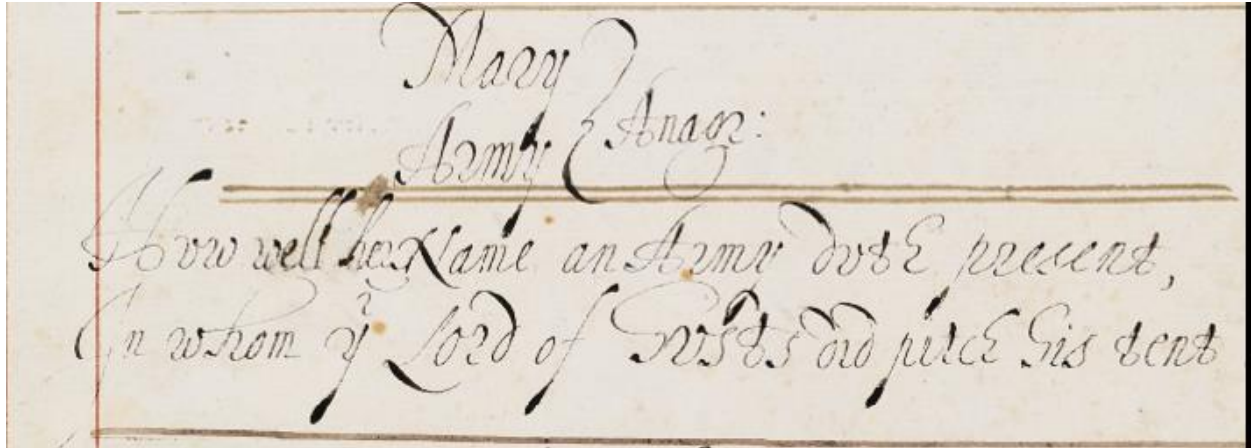 Mary
Army } Anagr:
How well her Name an Army doth present,
In whom yͤ Lord of Hosts did pitch his tent